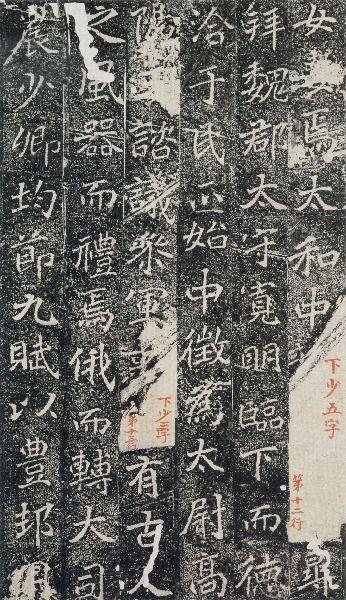 女焉太和中
下少五字
第十二行
拜魏郡太守寬明臨下而德
洽于民正始中徵為太尉高
陽王諮議參軍事有古人
下少三字
第十三行
之風器而禮焉俄而轉大司
農少卿均節九賦以豊邦用